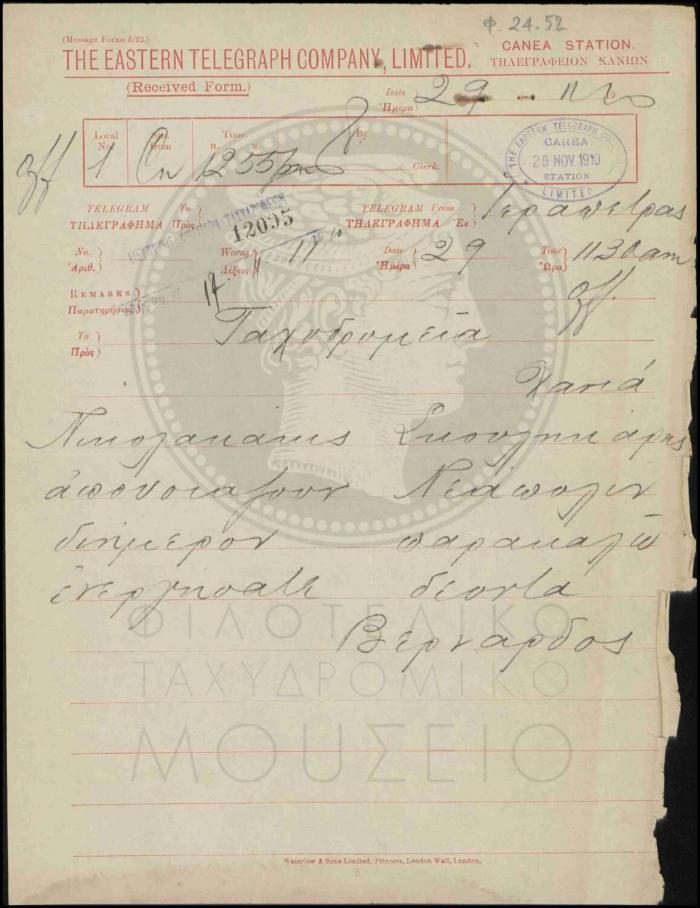 Φ. 24.52
(Message Forms b/22.)
THE EASTERN TELEGRAPH COMPANY, LIMITED.
CANEA STATION.
ΤΗΛΕΓΡΑΦΕΙΟΝ ΧΑΝΙΩΝ
(Received Form.)
Date
Ἡμέρα
29 - 11
Local No.
Time.
H. M.
By
Clerk.
1 Cn 1255 pm
THE EASTERN TELEGRAPH
CANEA
29 NOV. 1910
STATION
LIMITED
TELEGRAM To
ΤΗΛΕΓΡΑΦΗΜΑ Πρὸς
12095
TELEGRAM From
ΤΗΛΕΓΡΑΦΗΜΑ Ἐκ
Ιεράπετρας
No.
Ἀριθ.
Words
Λέξεις
17
11
Date
Ἡμέρα
29
Time
Ὥρα
1130 am
REMARKS
Παρατηρήσεις
To
Πρὸς
Ταχυδρομεία
Χανιά
Νικολακάκις Σκουληκάρης
ἀπουσιαζουν Νεάπολιν
διήμερον παρακαλῶ
ἐνεργησατε δεοντα
Βερναρδος
ΦΙΛΟΤΕΛΙΚΟ
ΤΑΧΥΔΡΟΜΙΚΟ
ΜΟΥΣΕΙΟ
Waterlow & Sons Limited, Printers, London Wall, London.